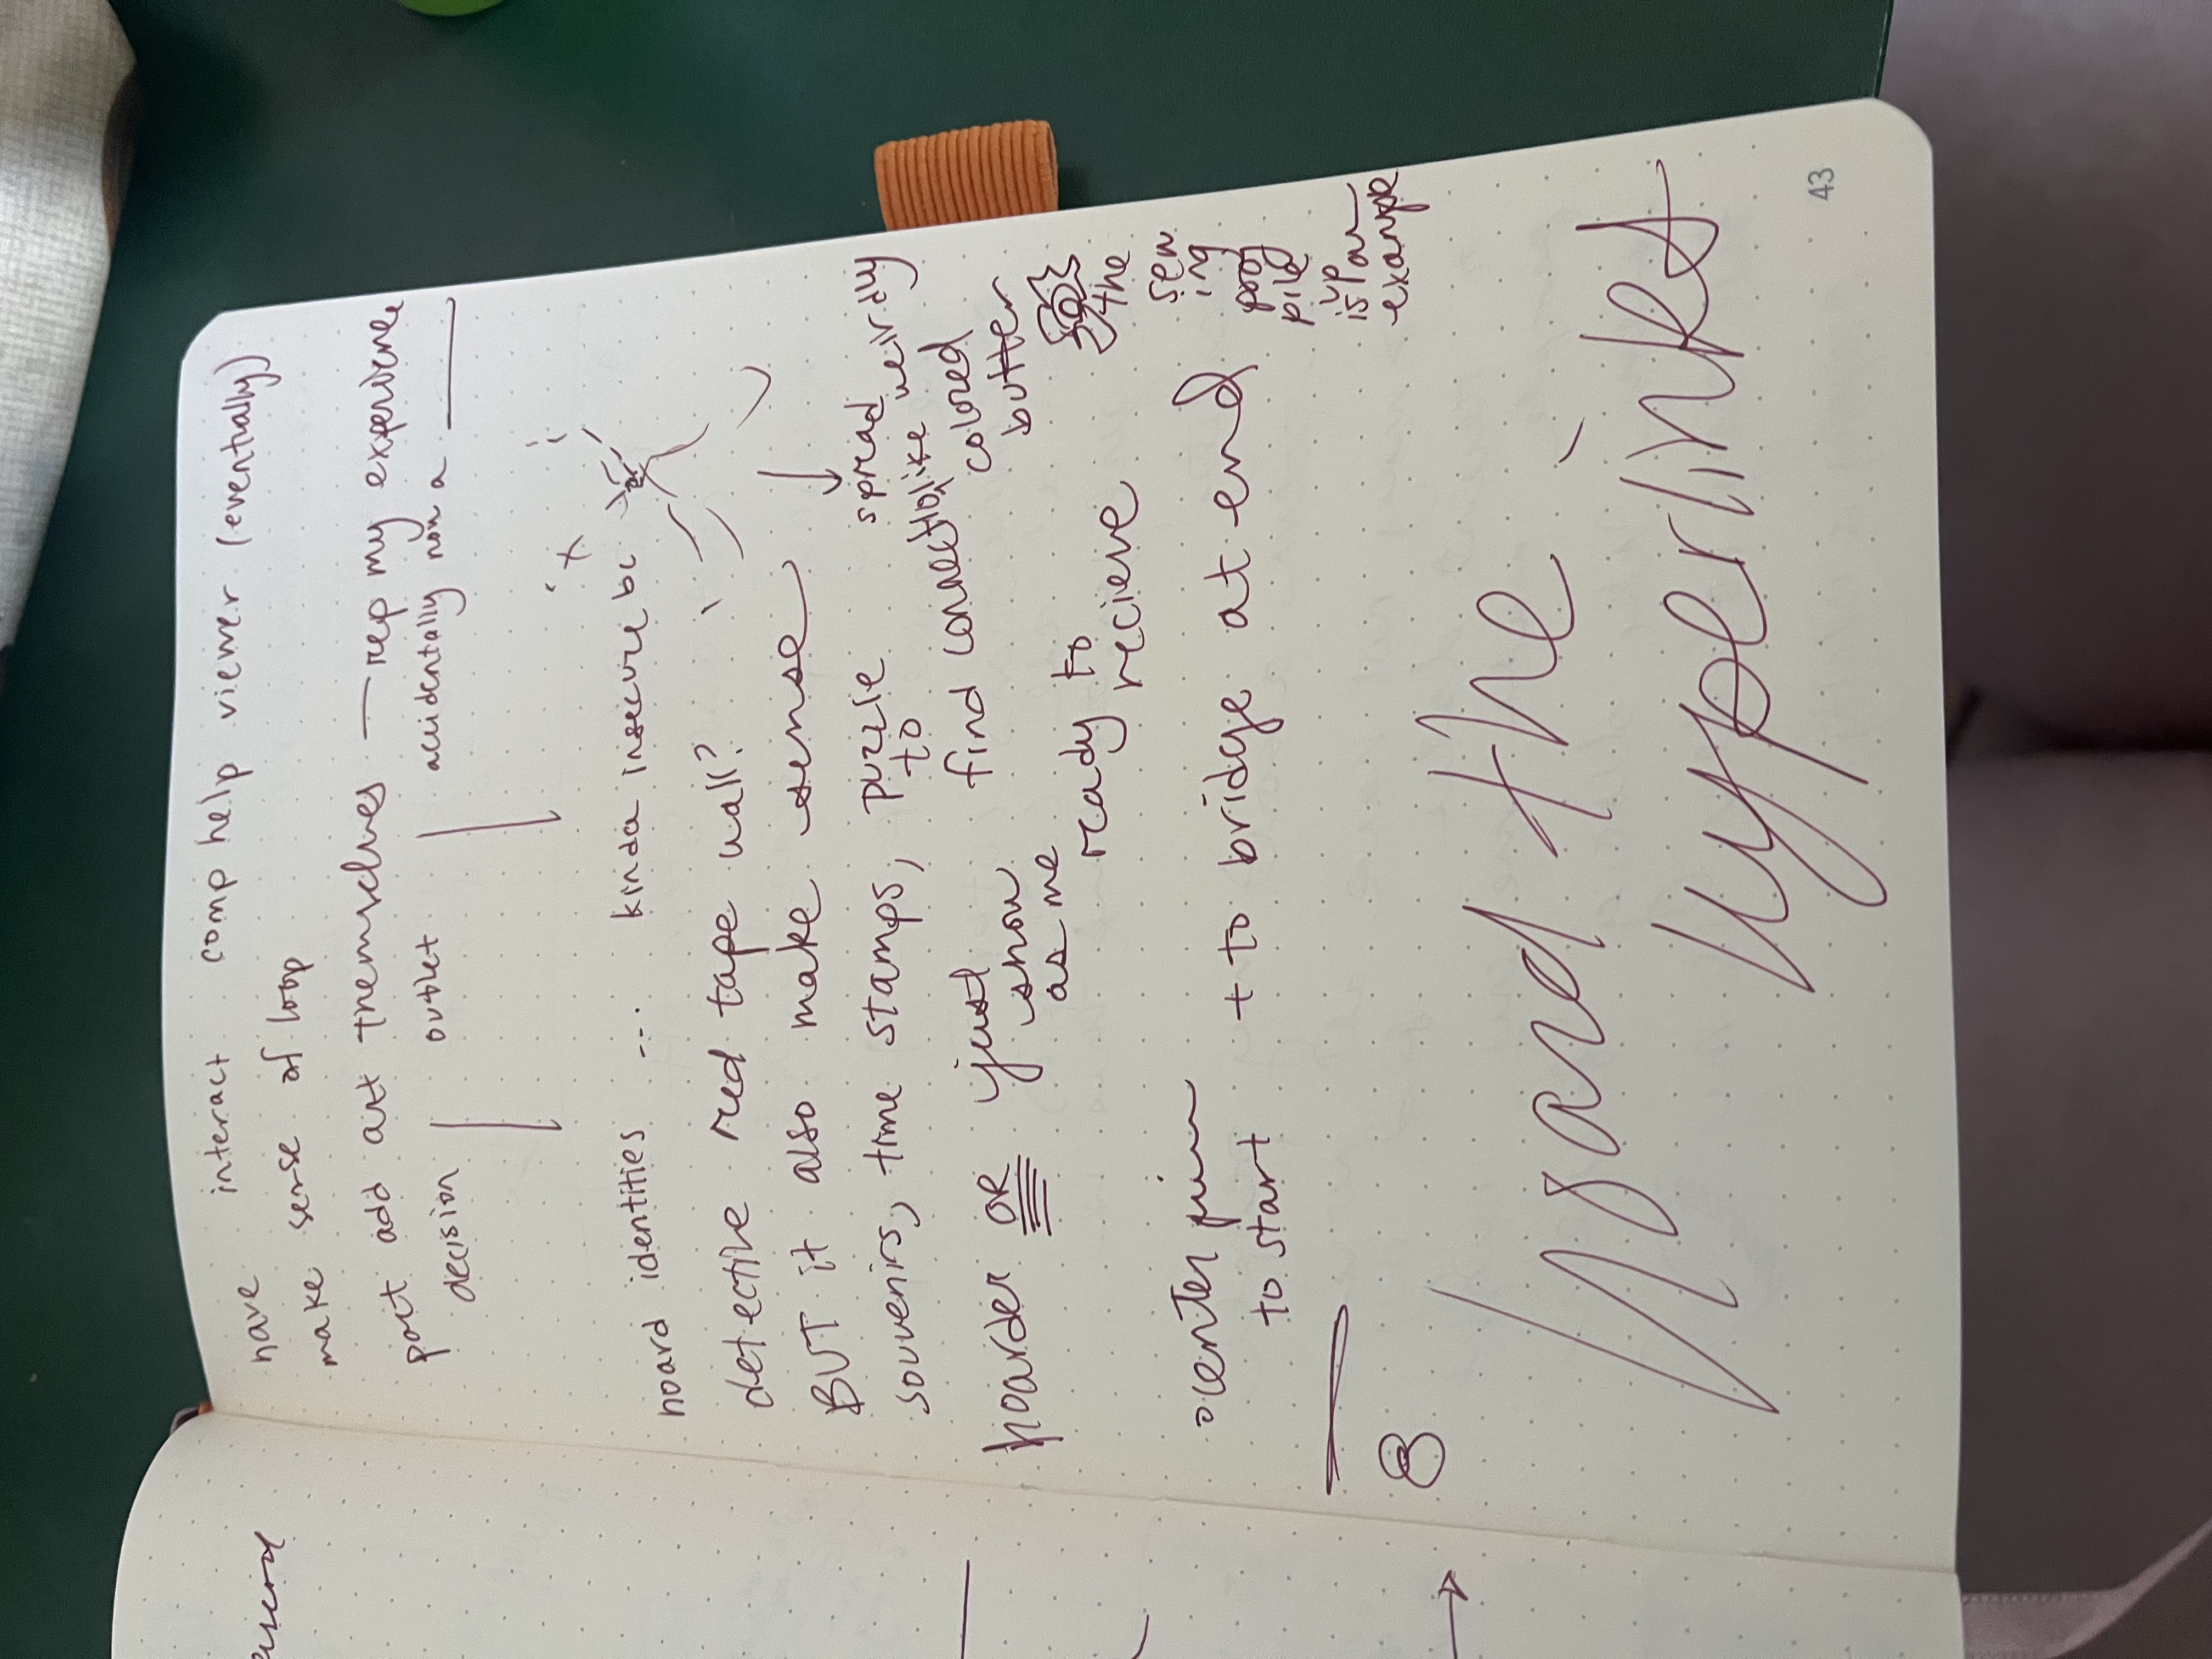 have interact comp help viewer (eventually)
make sense of loop
part add art themselves — rep my experience
decision | outlet | accidentally now a ____
hoard identities ... kinda insecure bc
detective red tape wall?
BUT it also make sense
souvenirs, time stamps, puzzle
to
find connection
spread
like weirdly
colored
butter
hoarder OR just
show
as me
ready to
recieve
the
sew
ing
proj
pile
up
is an
example
center
to start + to bridge at end
8
hoard the
hyperlinks
43